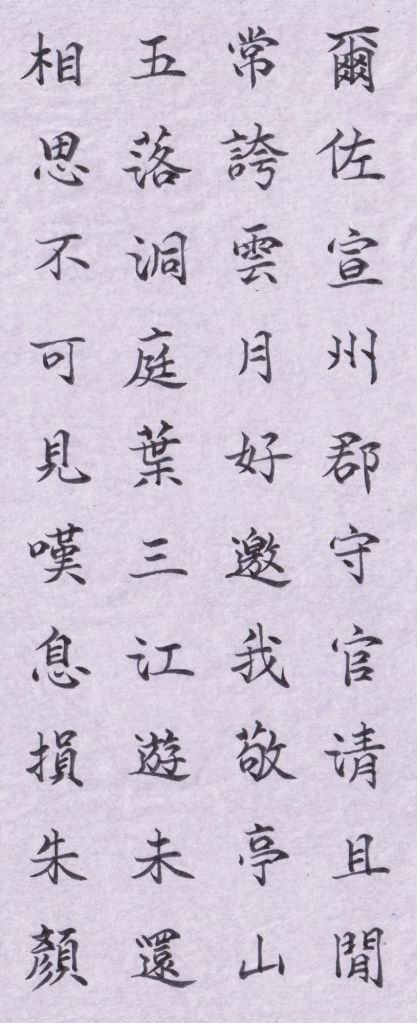 爾佐宣州郡守官请且閒
常誇雲月好邀我敬亭山
五落洞庭葉三江遊未還
相思不可見嘆息損朱顏